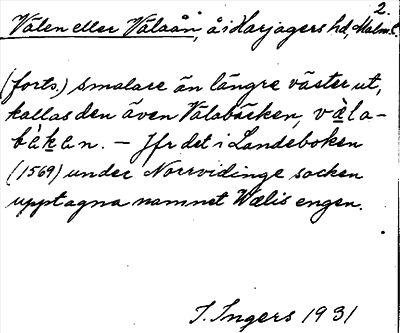 2.
Välen eller Välaån, å i Harjagers hd, Malm. l.
(forts.) smalare än längre väster ut,
kallas den även Välabäcken, vä̀la-
bǽkan. — Jfr det i Landeboken
(1569) under Norrvidinge socken
upptagna namnet Wælis engen.
I. Ingers 1931